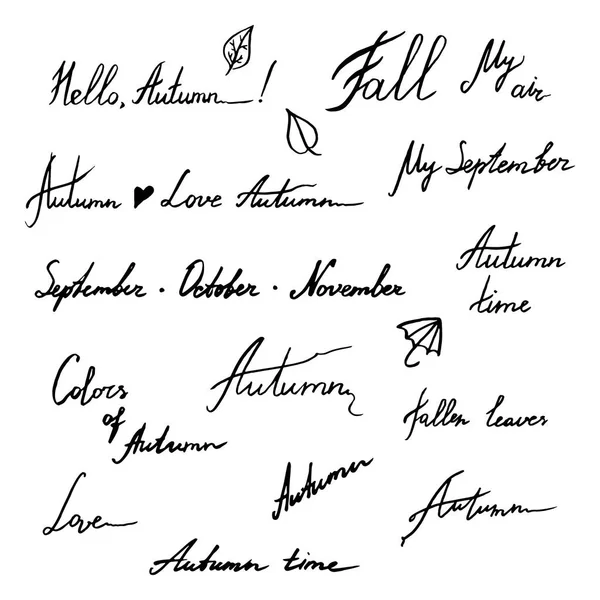 Hello, Autumn!
Fall
My
air
My September
Autumn ♥ Love Autumn
September · October · November
Autumn
time
Colors
of
Autumn
Autumn
Fallen leaves
Autumn
Love
Autumn
Autumn time